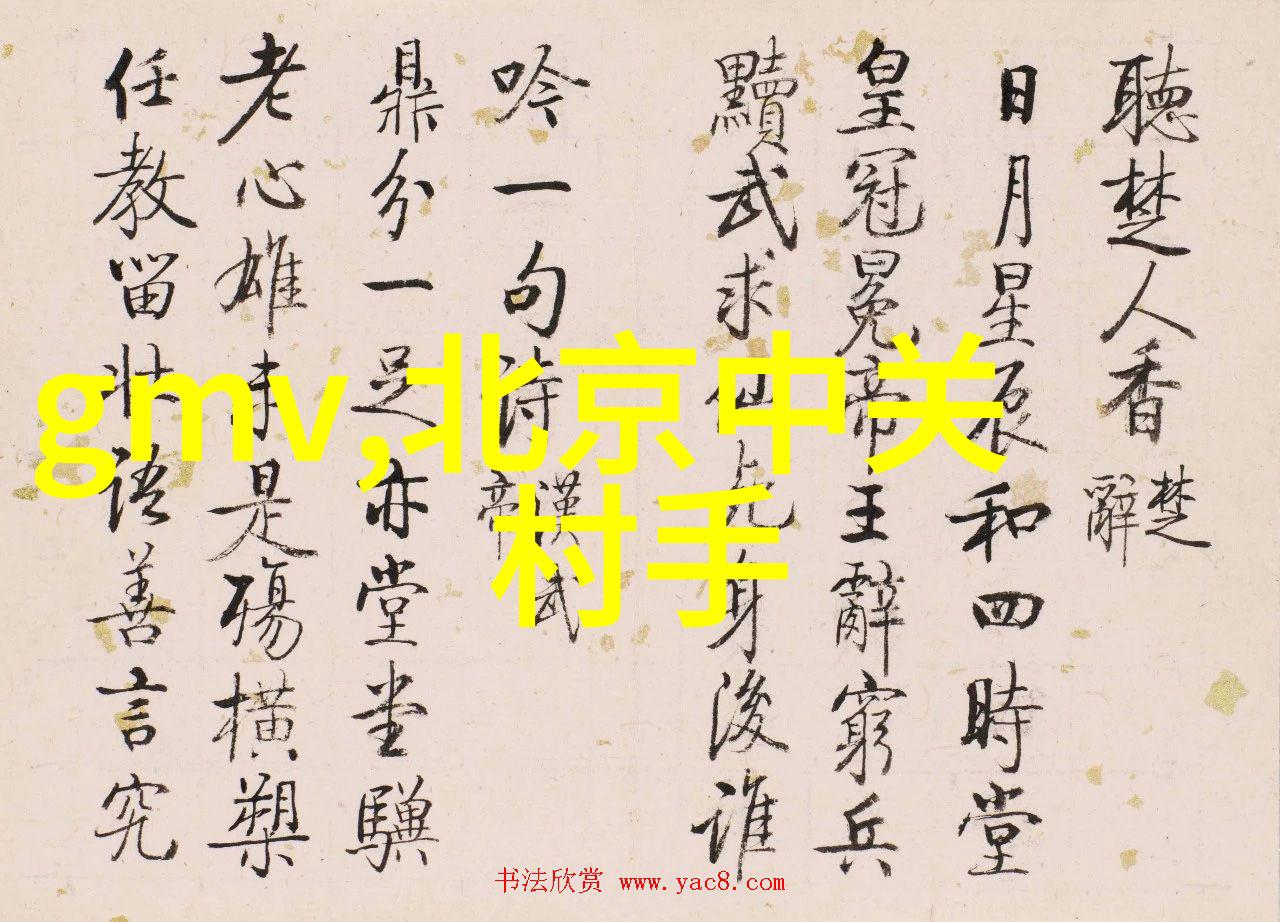 聽楚人香 楚辭
日月星辰和四時堂
皇冠冕帝王辭窮兵
黷武求仙死身後誰
吟一句詩 漢武帝
鼎分一足亦堂堂驥
老心雄未是殤橫槊
任教留壯語善言究
gmv,北京中关
村手
书法欣赏 www.yac8.com